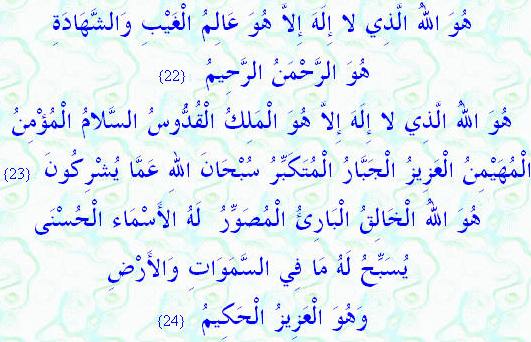 هُوَ اللهُ الَّذِي لا إِلَهَ إِلاَّ هُوَ عَالِمُ الْغَيْبِ وَالشَّهَادَةِ
هُوَ الرَّحْمَنُ الرَّحِيمُ {22}
هُوَ اللهُ الَّذِي لا إِلَهَ إِلاَّ هُوَ الْمَلِكُ الْقُدُّوسُ السَّلامُ الْمُؤْمِنُ
الْمُهَيْمِنُ الْعَزِيزُ الْجَبَّارُ الْمُتَكَبِّرُ سُبْحَانَ اللهِ عَمَّا يُشْرِكُونَ {23}
هُوَ اللهُ الْخَالِقُ الْبَارِئُ الْمُصَوِّرُ لَهُ الأَسْمَاء الْحُسْنَى
يُسَبِّحُ لَهُ مَا فِي السَّمَوَاتِ وَالأَرْضِ
وَهُوَ الْعَزِيزُ الْحَكِيمُ {24}